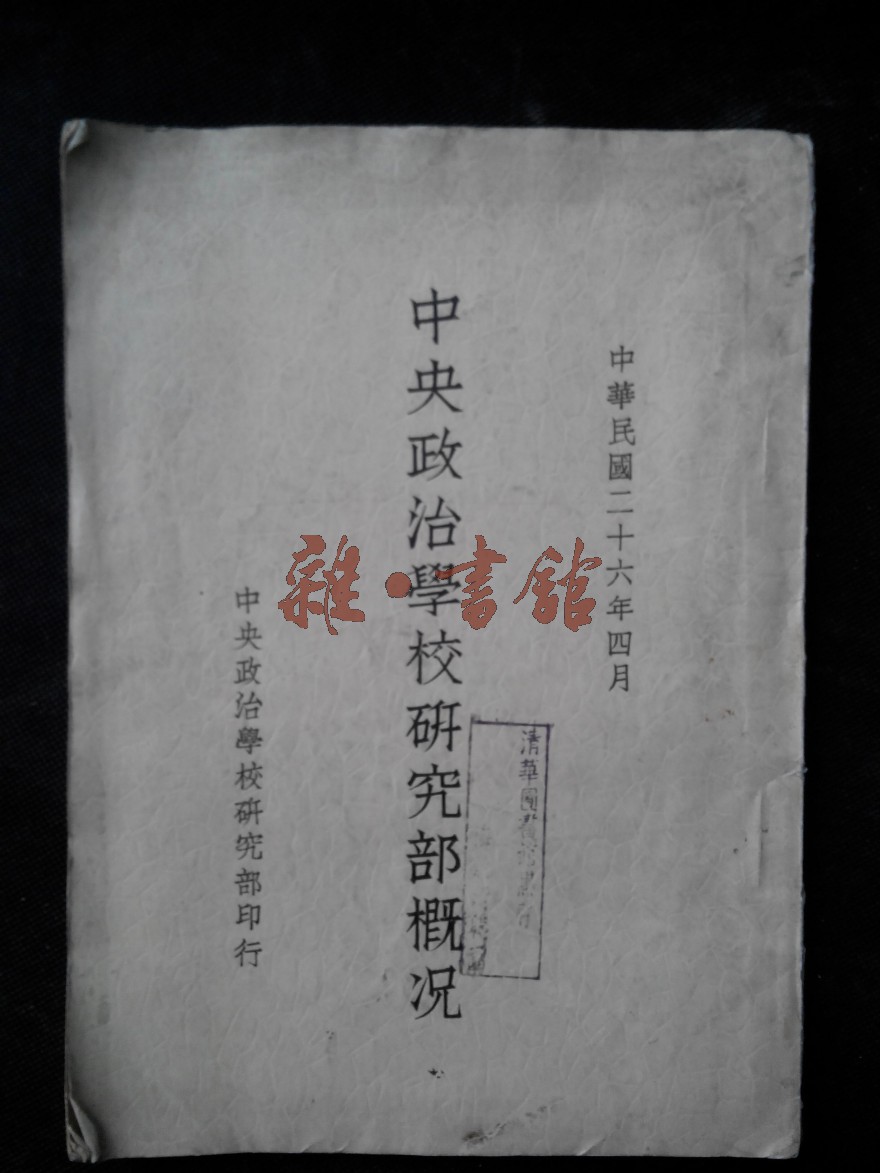 中華民國二十六年四月
中央政治學校研究部概况
中央政治學校研究部印行
雜·書館
清華圖書館